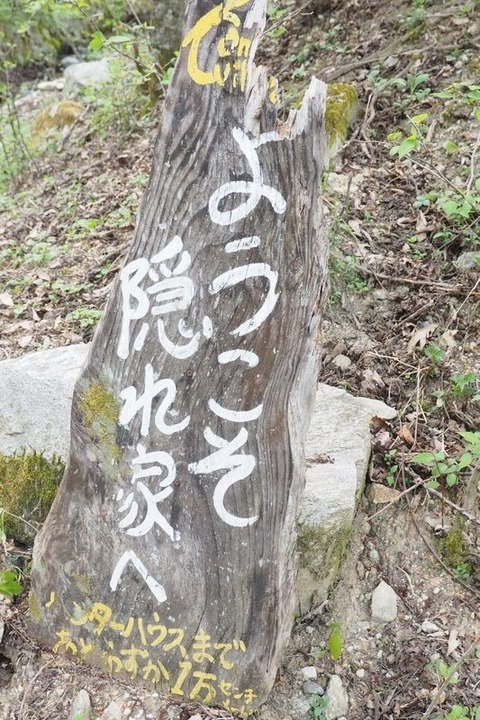 ようこそ
隠れ家へ
ンターハウスまで
あとわずか1万センチ